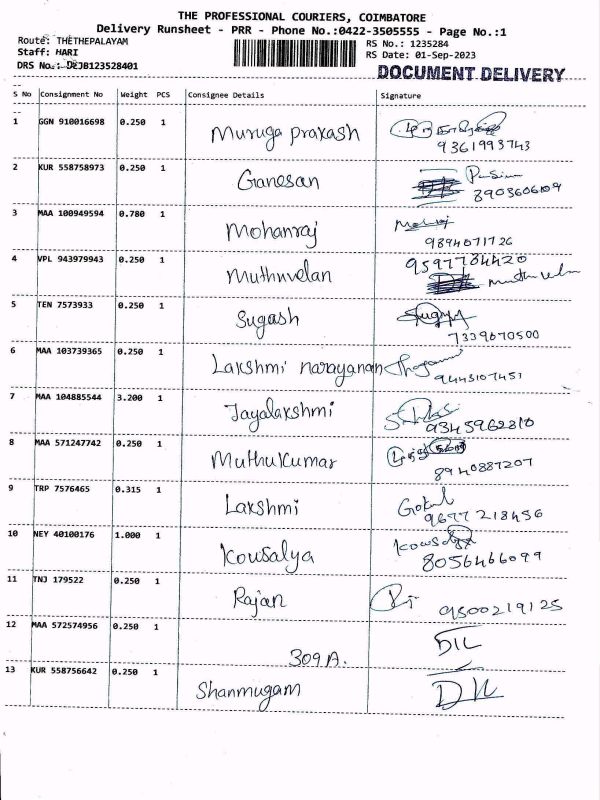 THE PROFESSIONAL COURIERS, COIMBATORE
Delivery Runsheet - PRR - Phone No.:0422-3505555 - Page No.:1
Route: THETHEPALAYAM RS No.: 1235284
Staff: HARI RS Date: 01-Sep-2023
DRS No.: DEJB123528401 DOCUMENT DELIVERY
S No Consignment No Weight PCS Consignee Details Signature
1 GGN 910016698 0.250 1 Muruga prakash
9361993743
2 KUR 558758973 0.250 1 Ganesan
8903606109
3 MAA 100949594 0.780 1 Mohanraj
9894071726
4 VPL 943979943 0.250 1 Muthuvelan 9597784420
5 TEN 7573933 0.250 1 Sugash
7339670500
6 MAA 103739365 0.250 1 Lakshmi narayanan
9443107451
7 MAA 104885544 3.200 1 Jayalakshmi
9345962810
8 MAA 571247742 0.250 1 Muthukumar
8940887207
9 TRP 7576465 0.315 1 Lakshmi Gokul
9677218456
10 NEY 40100176 1.000 1 Kousalya Kowsalya
8056466099
11 TNJ 179522 0.250 1 Rajan
9500219125
12 MAA 572574956 0.250 1 309 A. DIL
13 KUR 558756642 0.250 1 Shanmugam DIL